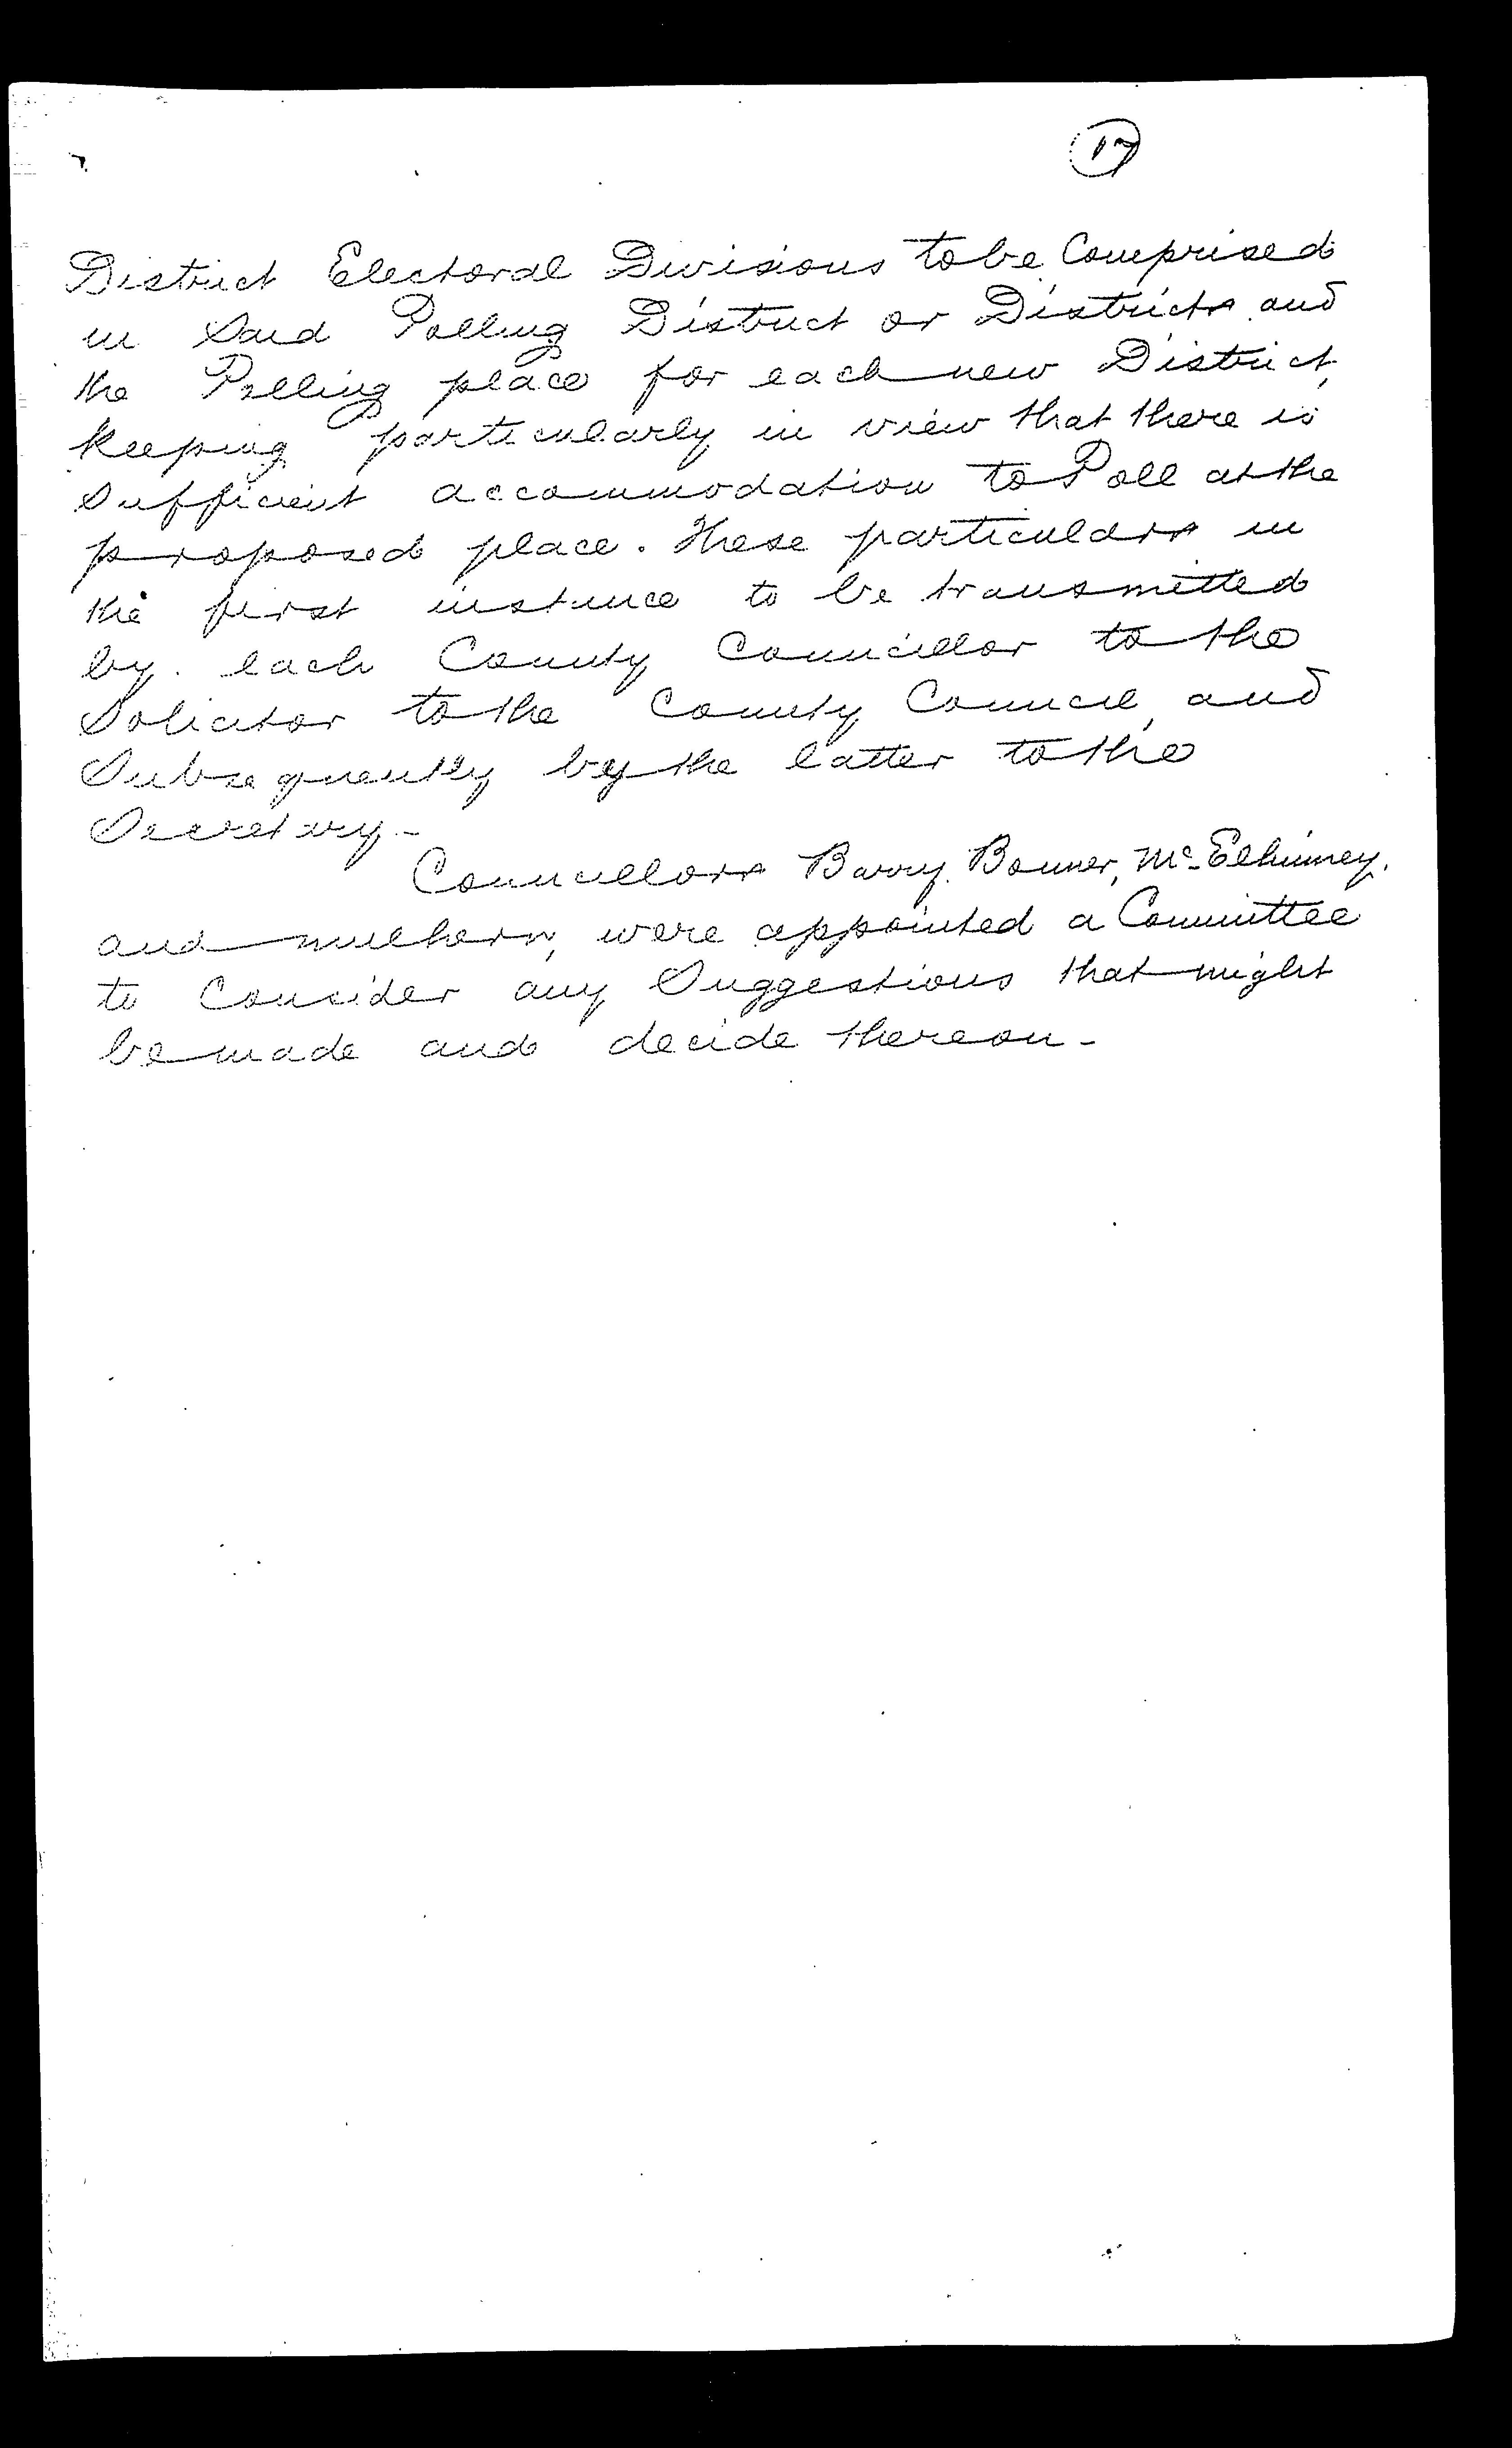 17
District Electoral Divisions to be Comprised
in Said Polling District or Districts and
the Polling place for each new District,
keeping particularly in view that there is
Sufficient accommodation to Poll at the
proposed place. These particulars in
the first instance to be transmitted
by each County Councillor to the
Solicitor to the County Council, and
Subsequently by the latter to the
Secretary -
Councillors Barry, Bonner, McElhinney,
and Mulhern, were appointed a Committee
to Consider any Suggestions that might
be made and decide thereon -